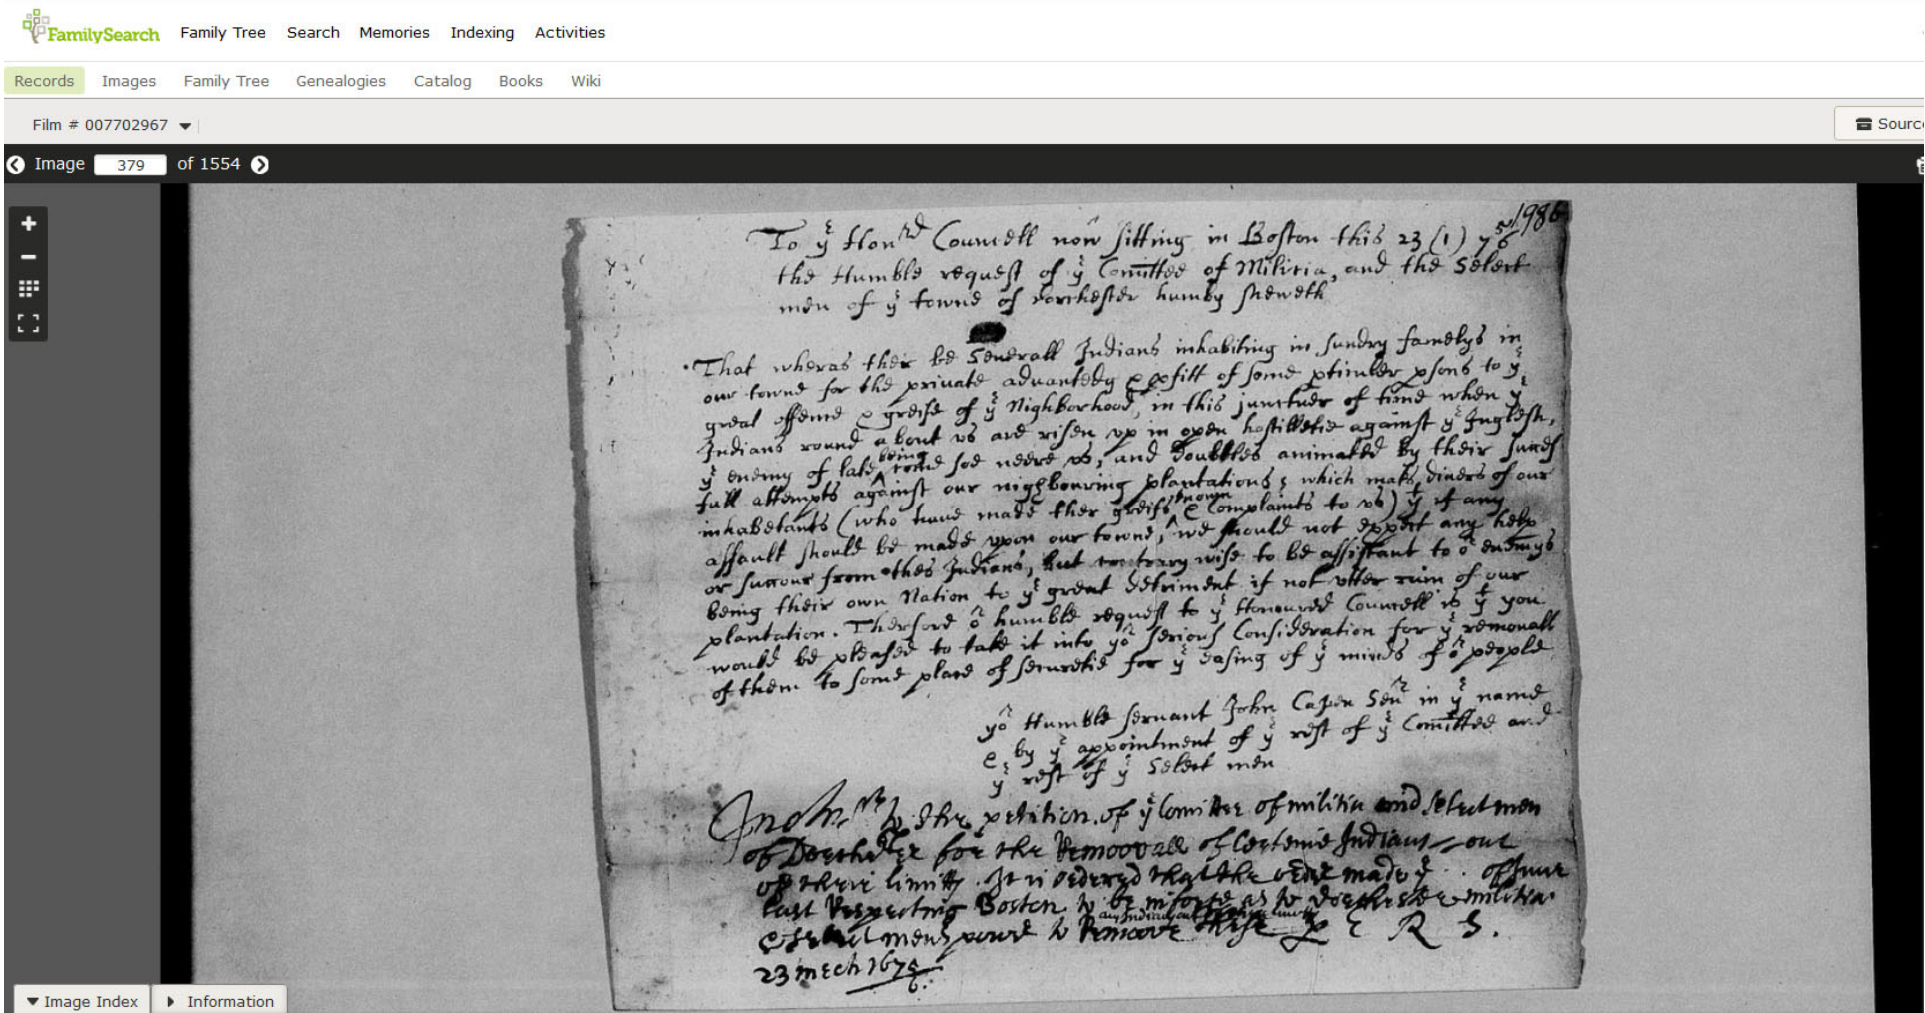 FamilySearch Family Tree Search Memories Indexing Activities
Records Images Family Tree Genealogies Catalog Books Wiki
Film # 007702967
Sourc
Image 379 of 1554
198
To yͤ Honʳᵈ Councell now sitting in Boston this 23 (1) 7⁵6
the Humble request of yͤ Comittee of Militia, and the Select
men of yͤ towne of dorchester humby sheweth
That wheras ther be Severall Indians inhabiting in sundry famelys in
our towne for the private advantedg & pfitt of some pticuler psons to yͤ
great offence & greife of yͤ Nighborhood, in this junctuer of time when yͤ
Indians round about us are risen up in open hostilletie against yͤ Inglesh,
yͤ enemy of late being come soe neere us, and doubtles animated by their succes
full attempts against our nighbouring plantations; which maks divers of our
inhabetants (who have made ther greifs known & Complaints to us) yᵗ if any
assault should be made upon our towne, we should not expect any help
or succour from thes Indians, but contrary wise to be assistant to oʳ enemys
being their own Nation to yͤ great detriment if not utter ruin of our
plantation. Therfore oʳ humble request to yͤ Honoured Councell is yᵗ you
would be pleased to take it into yoʳ serious Consideration for yͤ removall
of them to some place of securetie for yͤ easing of yͤ minds of oʳ people
yoʳ Humble servant John Capen Senʳ in yͤ name
& by yͤ appointment of yͤ rest of yͤ Comittee and
yͤ rest of yͤ Select men
to the petition of yͤ Comittee of militia and select men
of Dorchester for the Remoovall of Certeine Indians out
of their limitts. It is ordered that the order made yͤ .. of June
last Respecting Boston to be inforce as to dorchester militia
& select mens power to Remoove any Indians out of their limitts these P E R S.
23 mrch 1675/6
Image Index Information